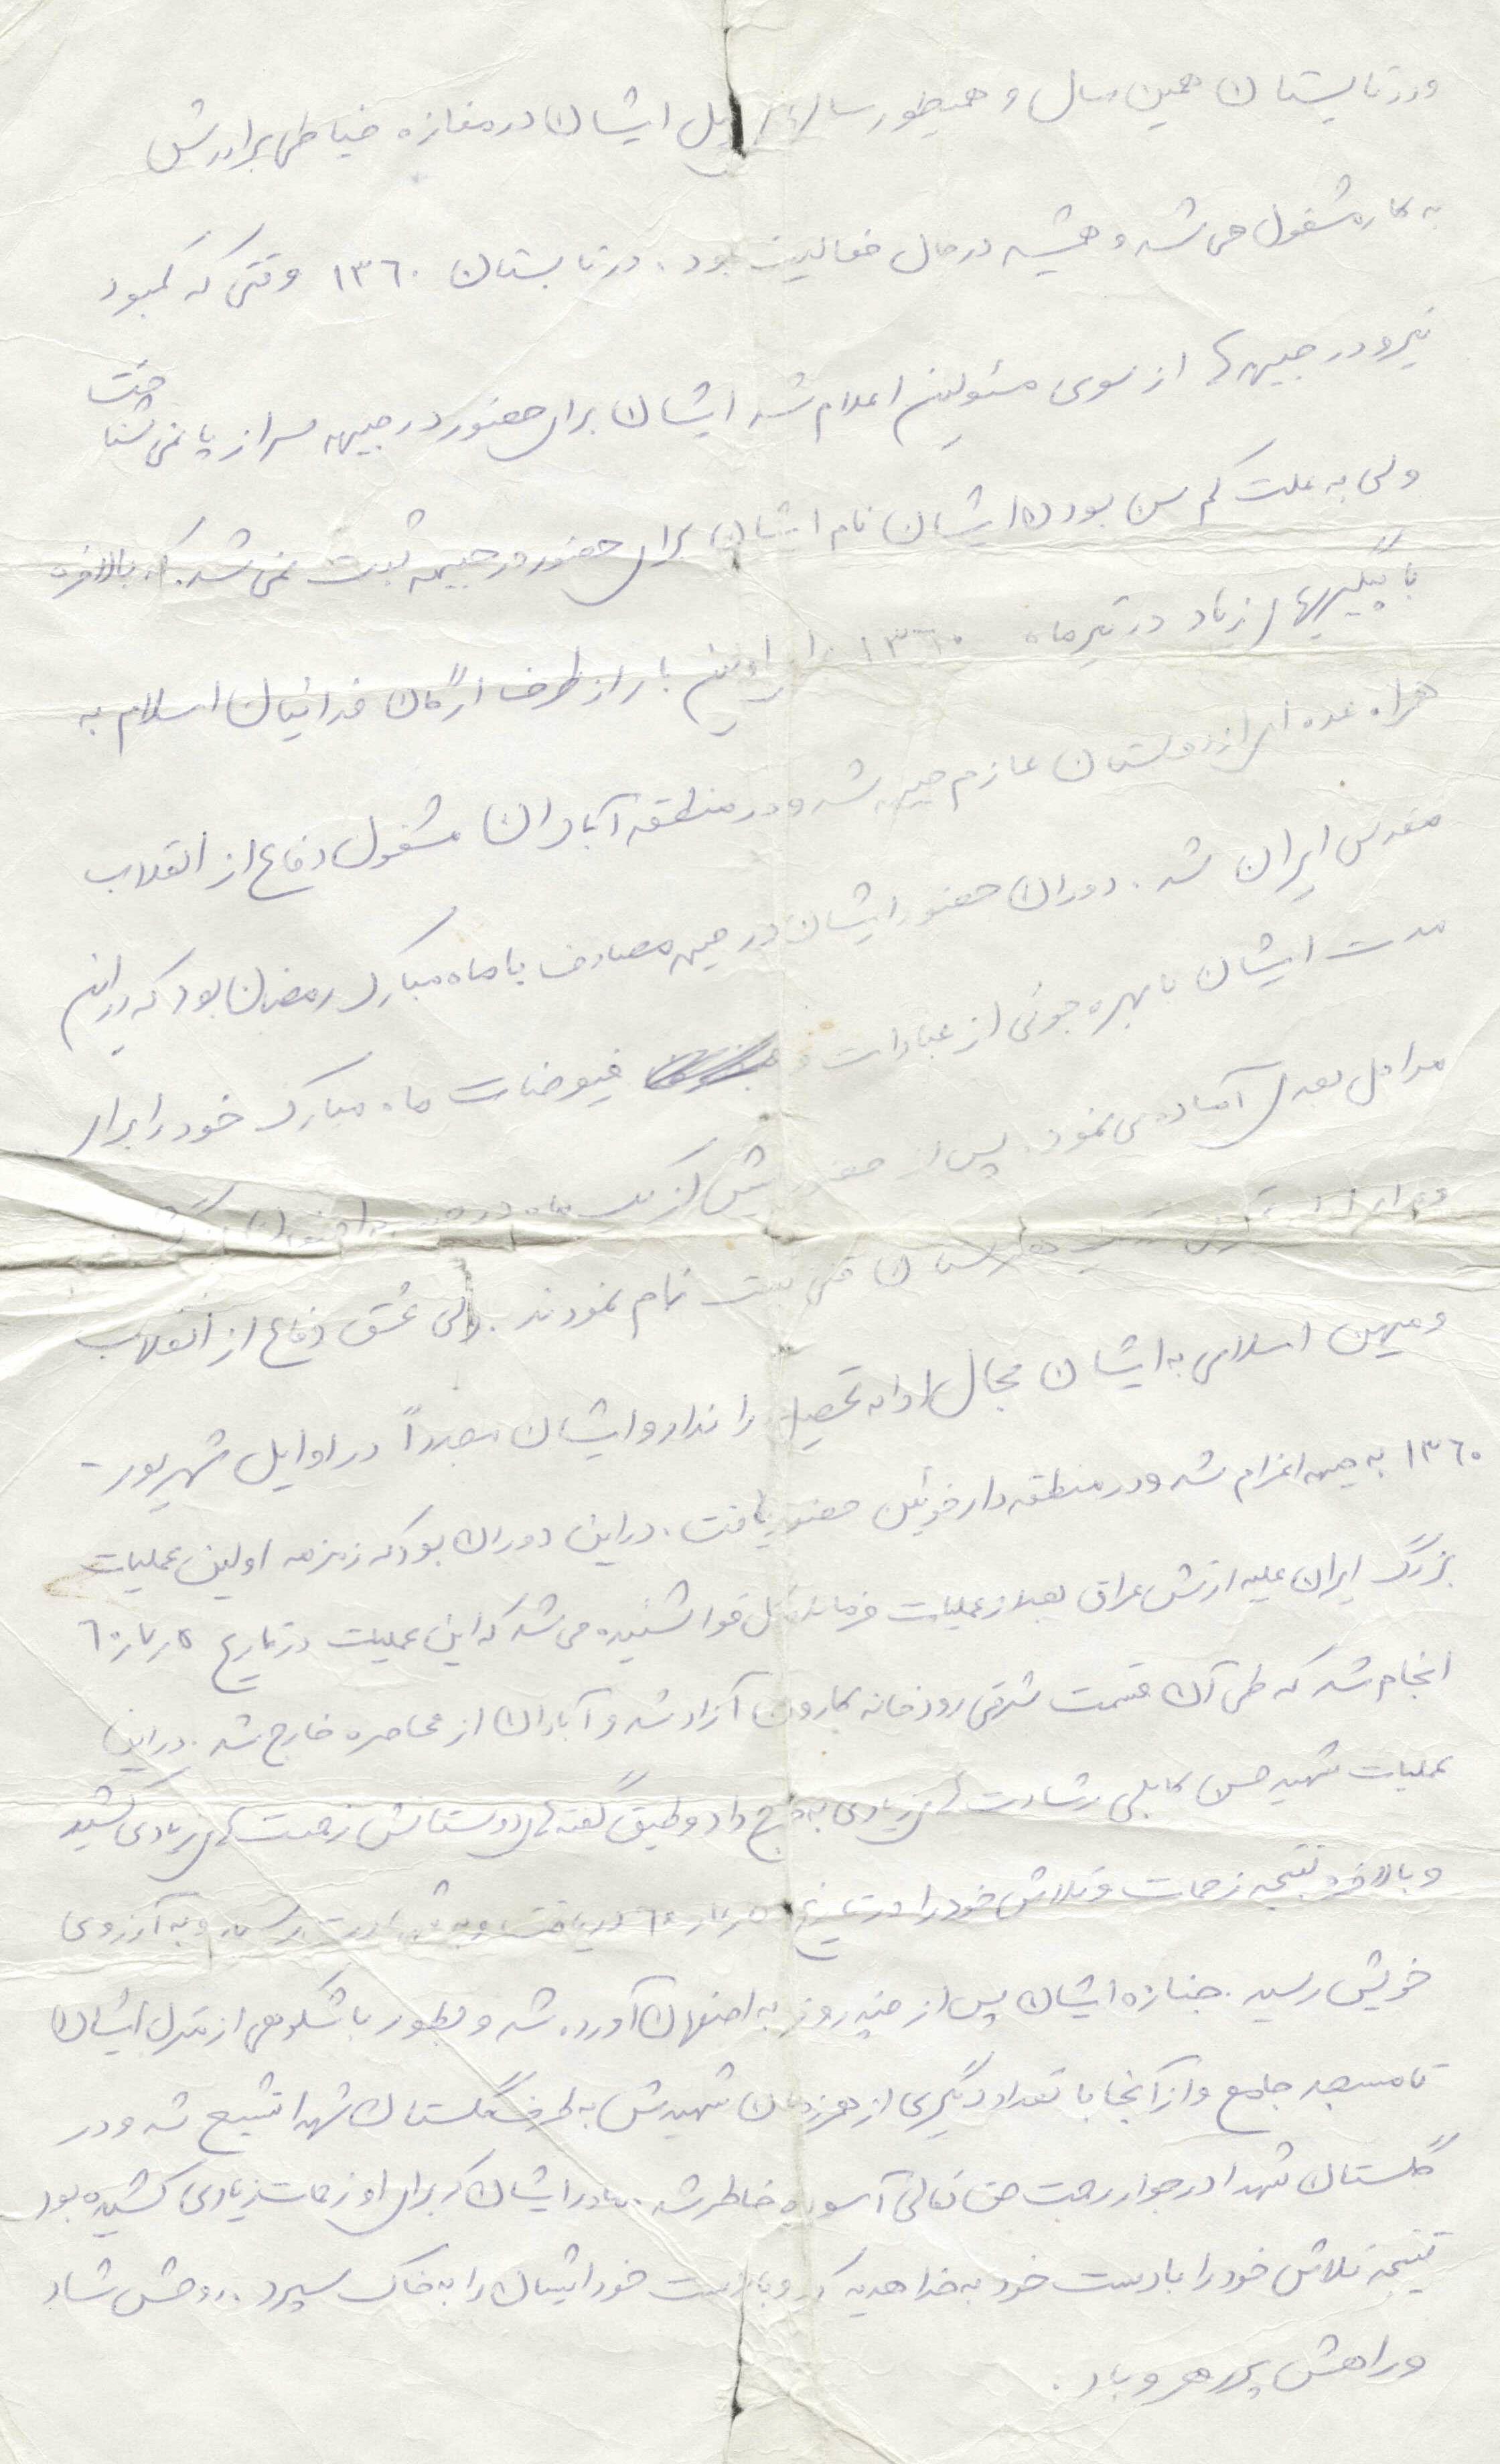 ودر تابستان همین سال و همینطور سالهای قبل ایشان در مغازه خیاطی برادرش
به کار مشغول می شد و همیشه در حال فعالیت بود. در تابستان ۱۳۶۰ وقتی که کمبود
نیرو در جبهه ها از سوی مسئولین اعلام شد ایشان برای حضور در جبهه سر از پا نمی شناخت
ولی به علت کم سن بودن ایشان نام ایشان برای حضور در جبهه ثبت نمی شد. که بالاخره
با پیگیریهای زیاد در تیرماه ۱۳۶۰ برای اولین بار از طرف ارگان فدائیان اسلام به
همراه عده ای از دوستان عازم جبهه شد و در منطقه آبادان مشغول دفاع از انقلاب
مقدس ایران شد. دوران حضور ایشان در جبهه مصادف با ماه مبارک رمضان بود که در این
مدت ایشان با بهره جوئی از عبادات و فیوضات ماه مبارک خود را برای
مراحل بعدی آماده می نمود. پس از حضور بیش از یک ماه در جبهه به اصفهان
و برای هنرستان فنی ثبت نام نمودند. ولی عشق دفاع از انقلاب
و میهن اسلامی به ایشان مجال ادامه تحصیل را نداد و ایشان مجدداً در اوایل شهریور -
۱۳۶۰ به جبهه اعزام شد و در منطقه دارخوئین حضور یافت. در این دوران بود که زمزمه اولین عملیات
بزرگ ایران علیه ارتش عراق بعد از عملیات فرمانده کل قوا شنیده می شد که این عملیات در تاریخ ۵ر۷ر۶۰
انجام شد که طی آن قسمت شرقی رودخانه کارون آزاد شد و آبادان از محاصره خارج شد. در این
عملیات شهید حسن کابلی رشادت های زیادی به خرج داد و طبق گفته های دوستانش زحمت های زیادی کشید
و بالاخره نتیجه زحمات و تلاش خود را در تاریخ ۵ر۷ر۶۰ دریافت و به شهادت رسید و به آرزوی
خویش رسید. جنازه ایشان پس از چند روز به اصفهان آورده شد و بطور با شکوهی از منزل ایشان
تا مسجد جامع و از آنجا با تعداد دیگری از همرزمان شهیدش به طرف گلستان شهدا تشییع شد و در
گلستان شهدا در جوار رحمت حق تعالی آسوده خاطر شد. مادر ایشان که برای او زحمات زیادی کشیده بود
نتیجه تلاش خود را با دست خود به خدا هدیه کرد و با دست خود ایشان را به خاک سپرد. روحش شاد
و راهش پر رهرو باد.